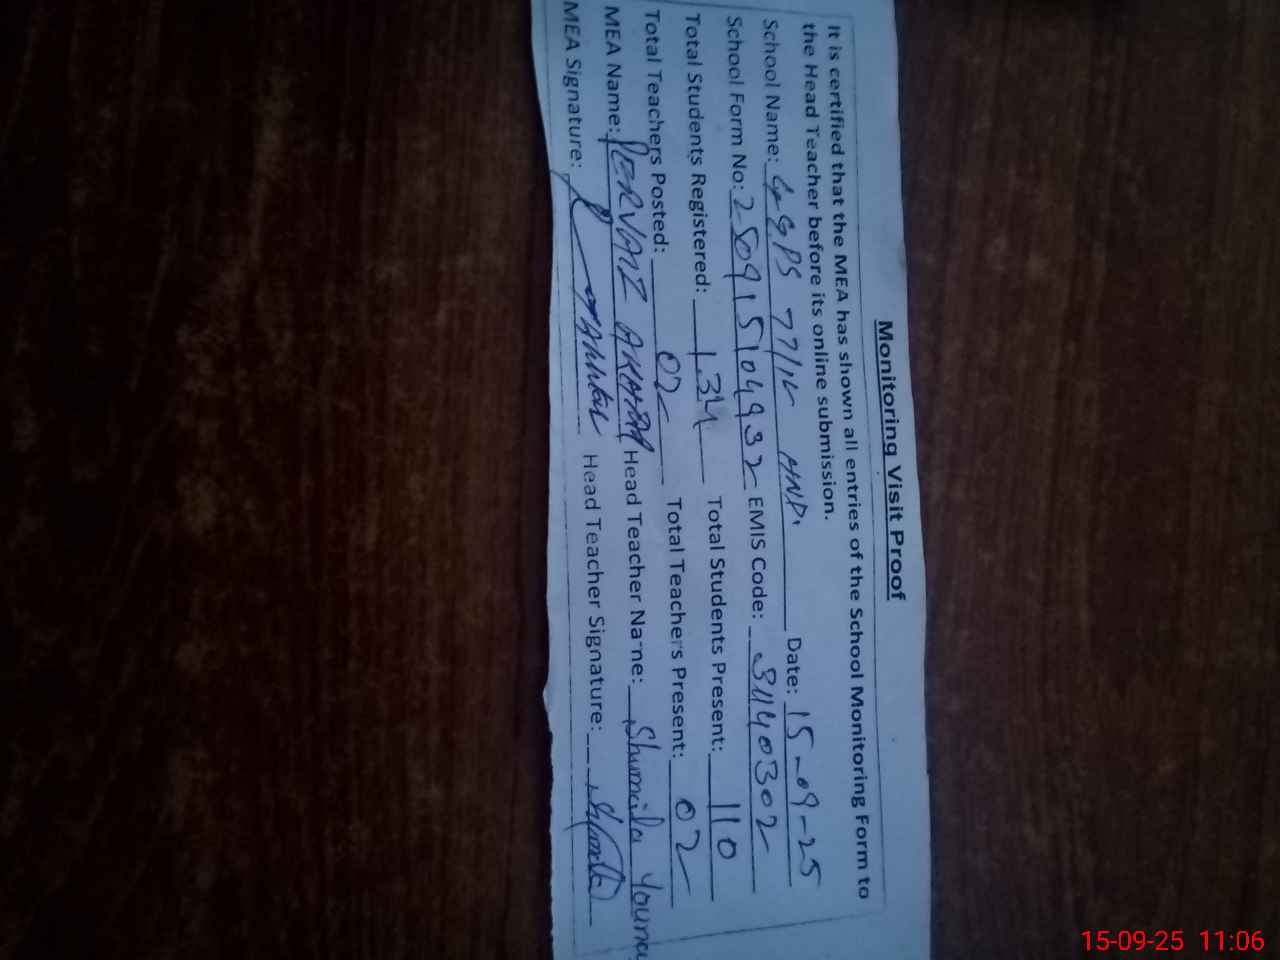 Monitoring Visit Proof
It is certified that the MEA has shown all entries of the School Monitoring Form to
the Head Teacher before its online submission.
School Name: GGPS 77/12 HNR. Date: 15-09-25
School Form No: 250915104932 EMIS Code: 31140302
Total Students Registered: 134 Total Students Present: 110
Total Teachers Posted: 02 Total Teachers Present: 02
MEA Name: PERVAIZ Head Teacher Name: Shumaila
MEA Signature: Head Teacher Signature:
15-09-25 11:06